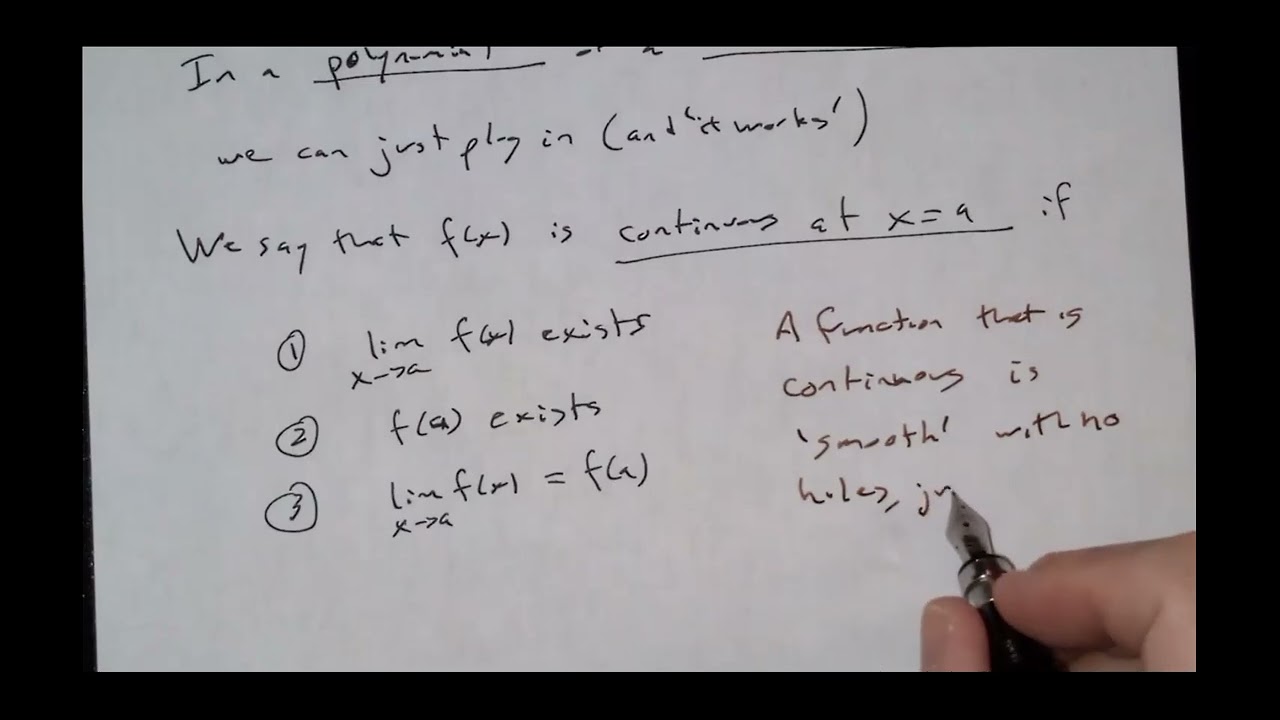 In a polynomial or a
we can just plug in (and 'it works')
We say that f(x) is continuous at x=a if
① lim f(x) exists
x→a
② f(a) exists
③ lim f(x) = f(a)
x→a
A function that is
continuous is
'smooth' with no
holes, ju